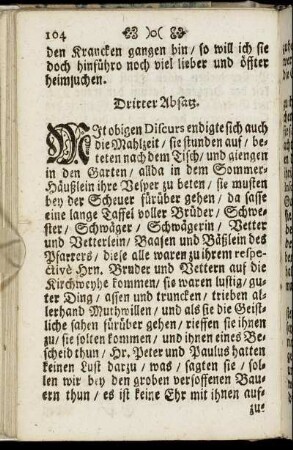 104
den Krancken gangen bin / so will ich sie
doch hinführo noch viel lieber und öffter
heimsuchen.
Dritter Absatz.
MIt obigen Discurs endigte sich auch
die Mahlzeit / sie stunden auf / be-
teten nach dem Tisch / und giengen
in den Garten / allda in dem Sommer-
Häußlein ihre Vesper zu beten / sie musten
bey der Scheuer fürüber gehen / da sasse
eine lange Taffel voller Brüder / Schwe-
ster / Schwäger / Schwägerin / Vetter
und Vetterlein / Baasen und Bäßlein des
Pfarrers / diese alle waren zu ihrem respe-
ctivè Hrn. Bruder und Vettern auf die
Kirchweyhe kommen / sie waren lustig / gu-
ter Ding / assen und truncken / trieben al-
lerhand Muthwillen / und als sie die Geist-
liche sahen fürüber gehen / rieffen sie ihnen
zu / sie solten kommen / und ihnen eines Be-
scheid thun / Hr. Peter und Paulus hatten
keinen Lust darzu / was / sagten sie / sol-
len wir bey den groben versoffenen Bau-
ern thun / es ist keine Ehr mit ihnen auf-
zu-